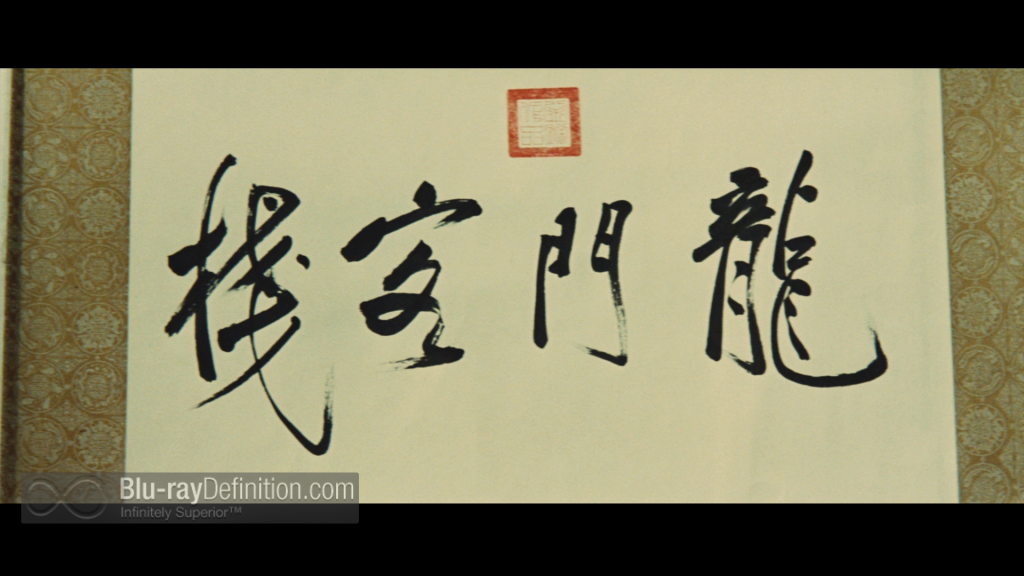 龍門客棧
Blu-rayDefinition.com
Infinitely Superior™